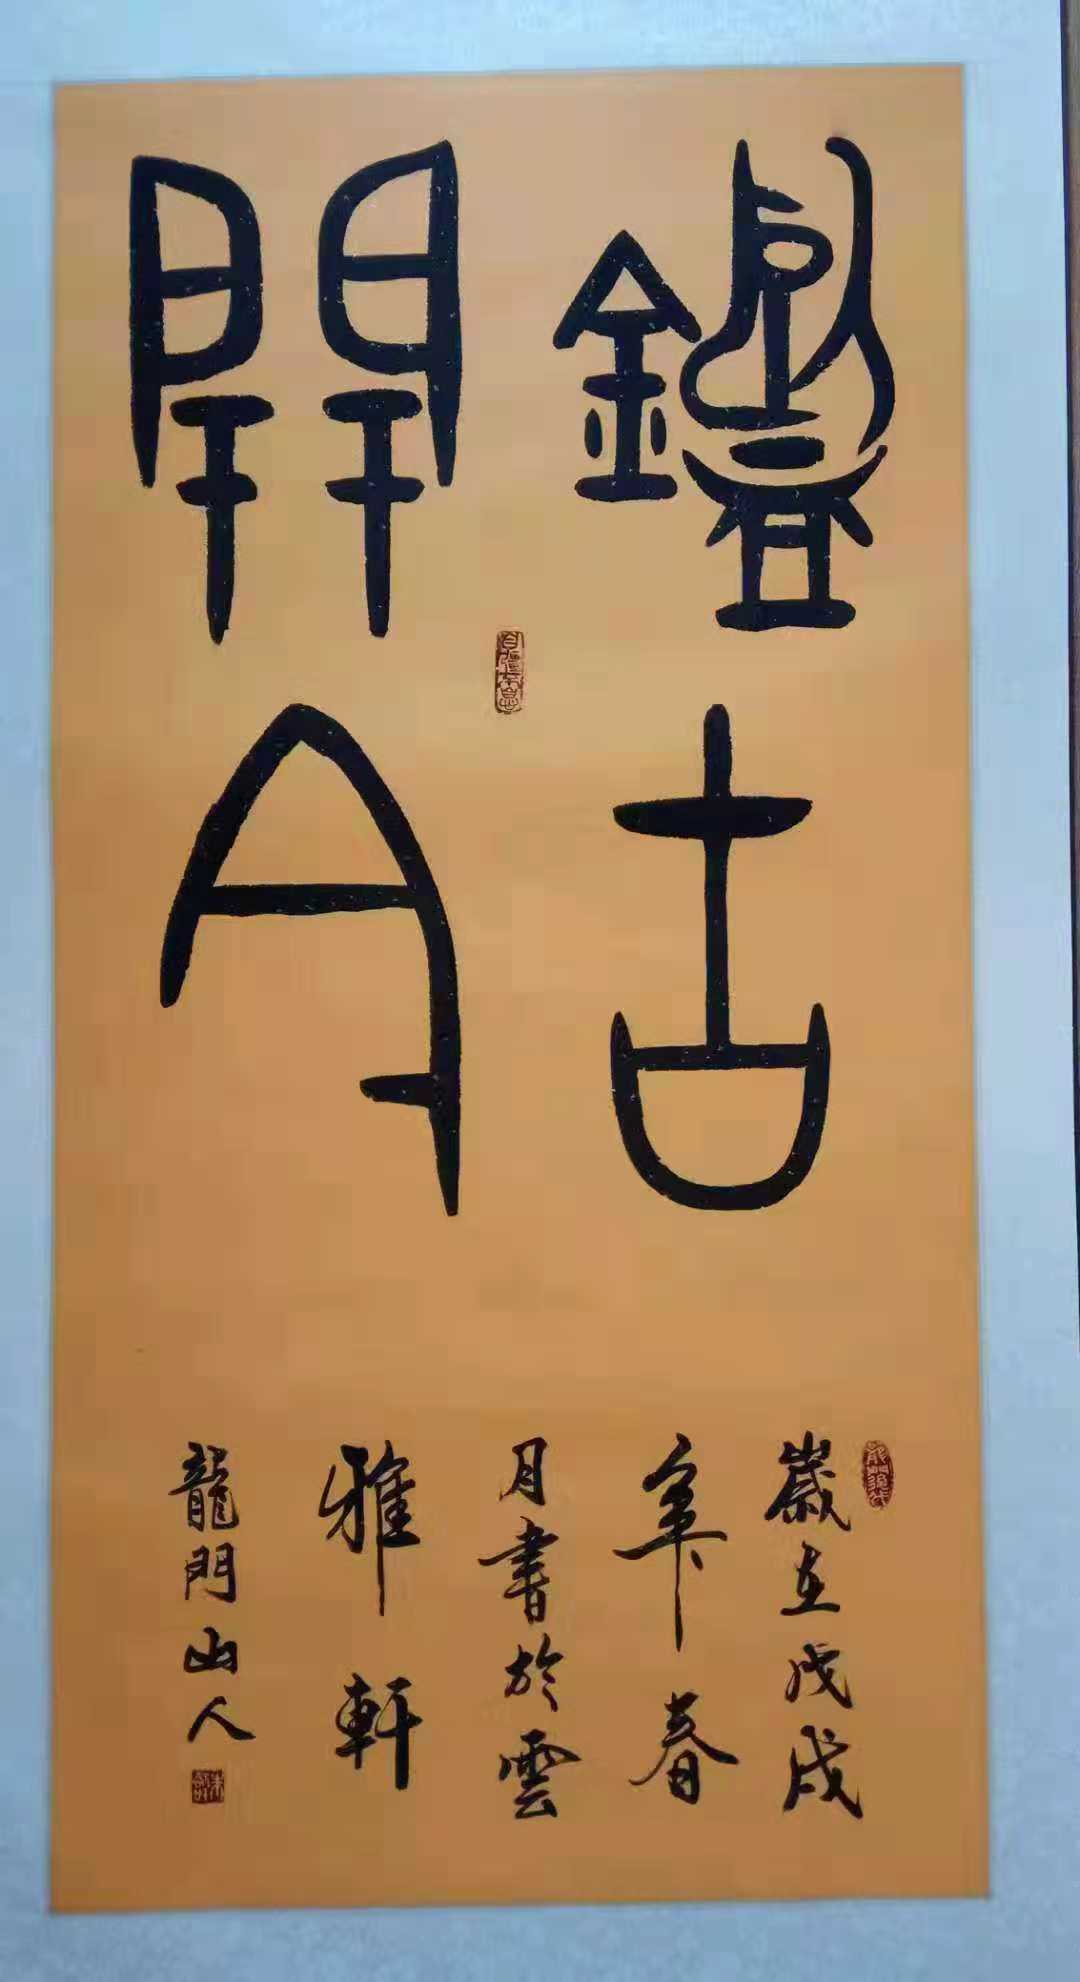 鑑古
開今
歲在戊戌
年春
月書於雲
雅軒
龍門山人